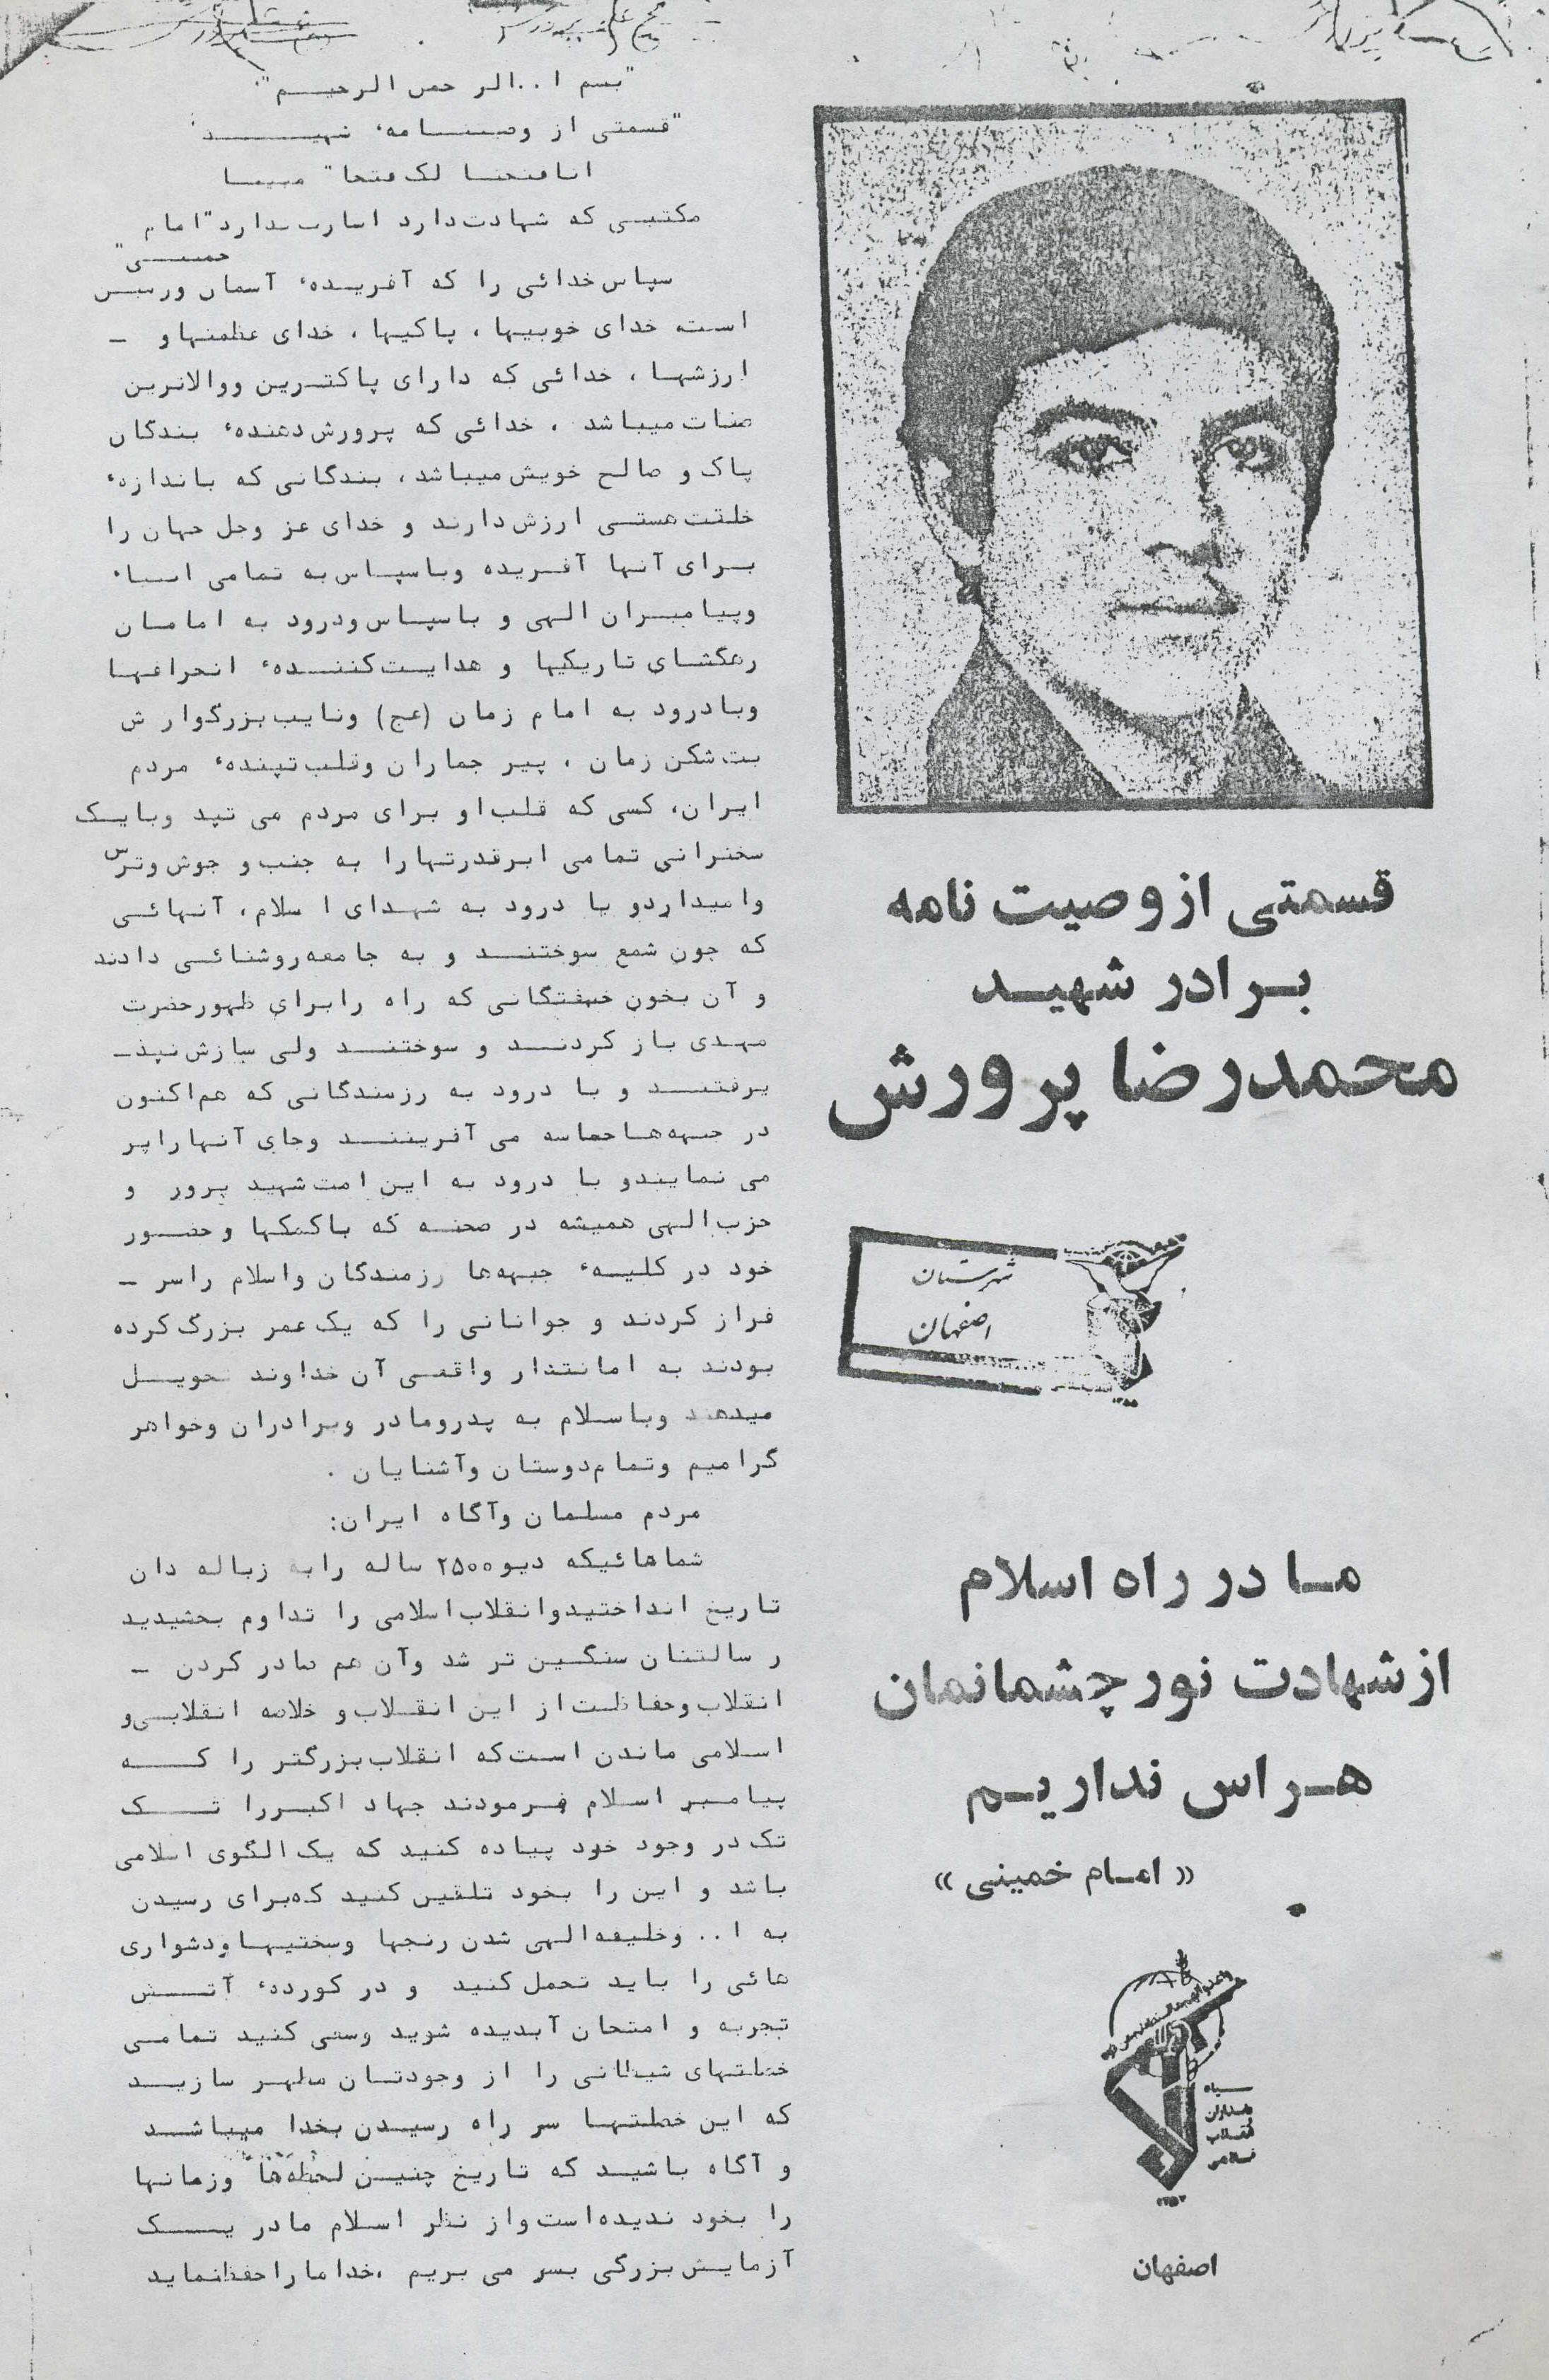 قسمتی از وصیت نامه
برادر شهید
محمدرضا پرورش
شهرستان
اصفهان
ما در راه اسلام
از شهادت نور چشمانمان
هراس نداریم
« امام خمینی »
سپاه
پاسداران
انقلاب
اسلامی
اصفهان
"بسم ا..الرحمن الرحیم"
"قسمتی از وصیتنامهٔ شهید"
انا فتحنا لک فتحا" مبینا
مکتبی که شهادت دارد اسارت ندارد "امام
خمینی"
سپاس خدائی را که آفریدهٔ آسمان وزمین
است خدای خوبیها ، پاکیها ، خدای عظمتها و -
ارزشها ، خدائی که دارای پاکترین ووالاترین
صفات میباشد ، خدائی که پرورش دهندهٔ بندگان
پاک و صالح خویش میباشد ، بندگانی که باندازهٔ
خلقت هستی ارزش دارند و خدای عز وجل جهان را
برای آنها آفریده وباسپاس به تمامی انبیاء
وپیامبران الهی و باسپاس ودرود به امامان
رهگشای تاریکیها و هدایت کنندهٔ انحرافها
وبادرود به امام زمان (عج) ونایب بزرگوار ش
بت شکن زمان ، پیر جماران وقلب تپندهٔ مردم
ایران، کسی که قلب او برای مردم می تپد وبایک
سخنرانی تمامی ابرقدرتهارا به جنب و جوش وترس
وامیداردو با درود به شهدای ا سلام ، آنهائی
که چون شمع سوختند و به جامعه روشنائی دادند
و آن بخون خفتگانی که راه رابرای ظهورحضرت
مهدی باز کردند و سوختند ولی سازش نپذ-
یرفتند و با درود به رزمندگانی که هم اکنون
در جبهه هاحماسه می آفرینند وجای آنهاراپر
می نمایندو با درود به این امت شهید پرور و
حزب الهی همیشه در صحنه که باکمکها وحضور
خود در کلیهٔ جبهه ها رزمندگان واسلام راسر -
فراز کردند و جوانانی را که یک عمر بزرگ کرده
بودند به امانتدار واقعی آن خداوند تحویل
میدهند وباسلام به پدرومادر وبرادران وخواهر
گرامیم وتمام دوستان وآشنایان .
مردم مسلمان وآگاه ایران:
شماهائیکه دیو ۲۵۰۰ ساله رابه زباله دان
تاریخ انداختیدوانقلاب اسلامی را تداوم بخشیدید
رسالتتان سنگین تر شد وآن هم صادر کردن -
انقلاب وحفاظت از این انقلاب و خلاصه انقلابی و
اسلامی ماندن است که انقلاب بزرگتر را که
پیامبر اسلام فرمودند جهاد اکبررا تک
تک در وجود خود پیاده کنید که یک الگوی اسلامی
باشد و این را بخود تلقین کنید که برای رسیدن
به ا.. وخلیفه الهی شدن رنجها وسختیها ودشواری
هائی را باید تحمل کنید و در کوردهٔ آتش
تجربه و امتحان آبدیده شوید وسعی کنید تمامی
خصلتهای شیطانی را از وجودتان مطهر سازید
که این خصلتها سر راه رسیدن بخدا میباشد
و آگاه باشید که تاریخ چنین لحظه ها وزمانها
را بخود ندیده است واز نظر اسلام مادر یک
آزمایش بزرگی بسر می بریم ،خدامارا حفظ نماید